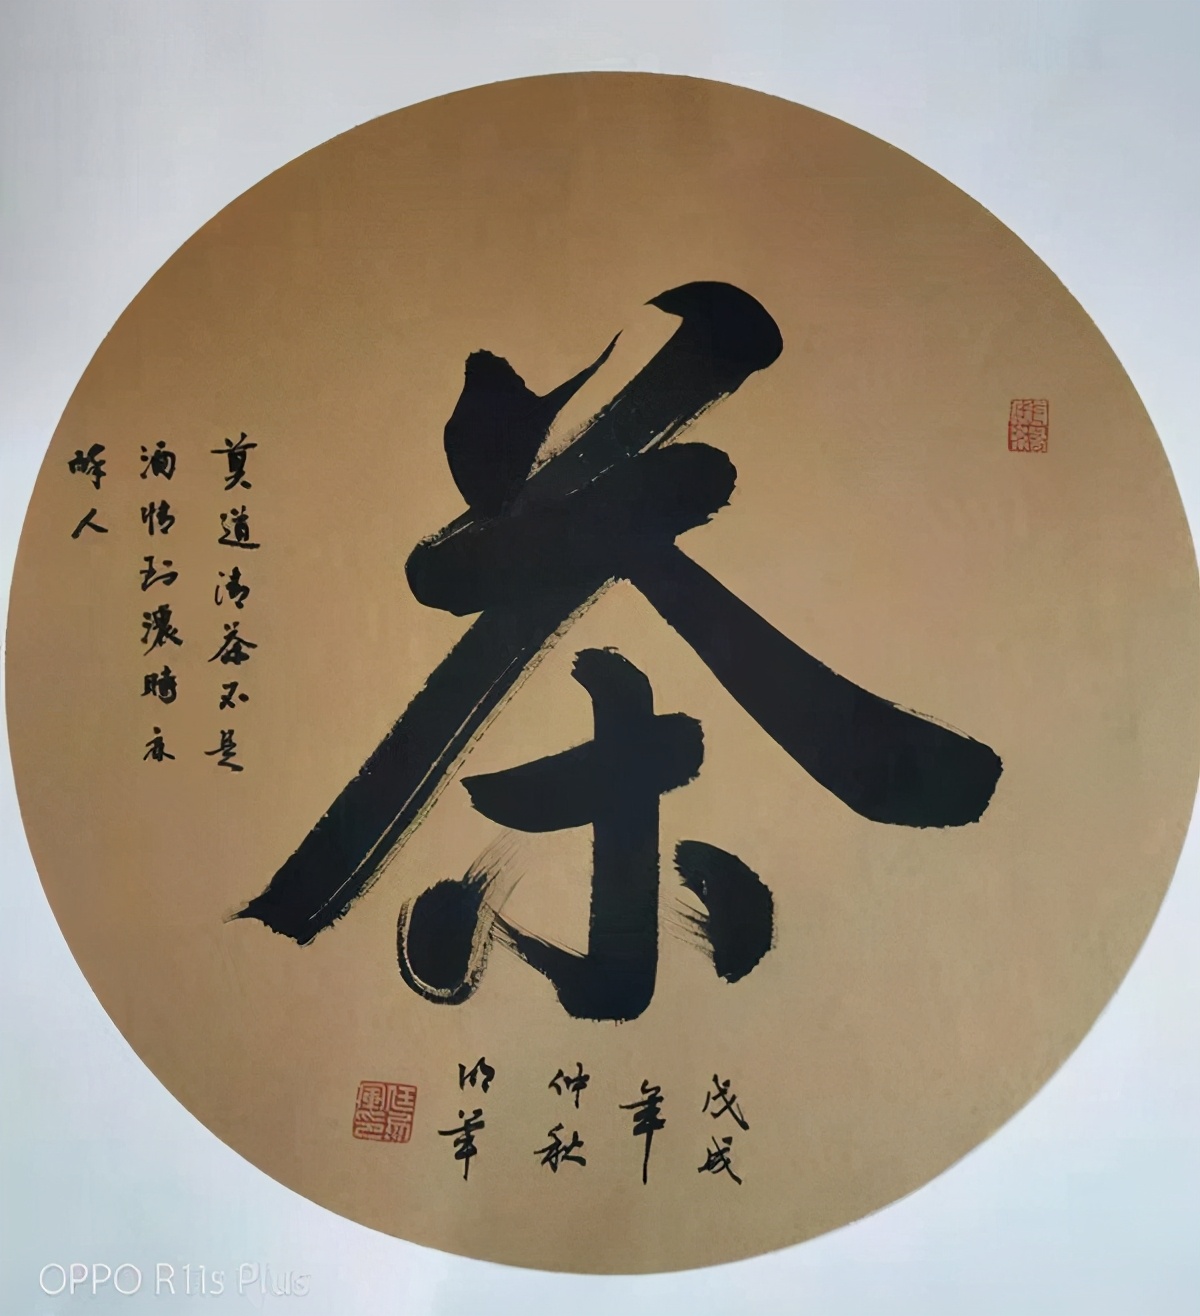 茶
莫道清茶不是
酒情到濃時亦
醉人
戊戌
年
仲秋
明華
OPPO R11s Plus